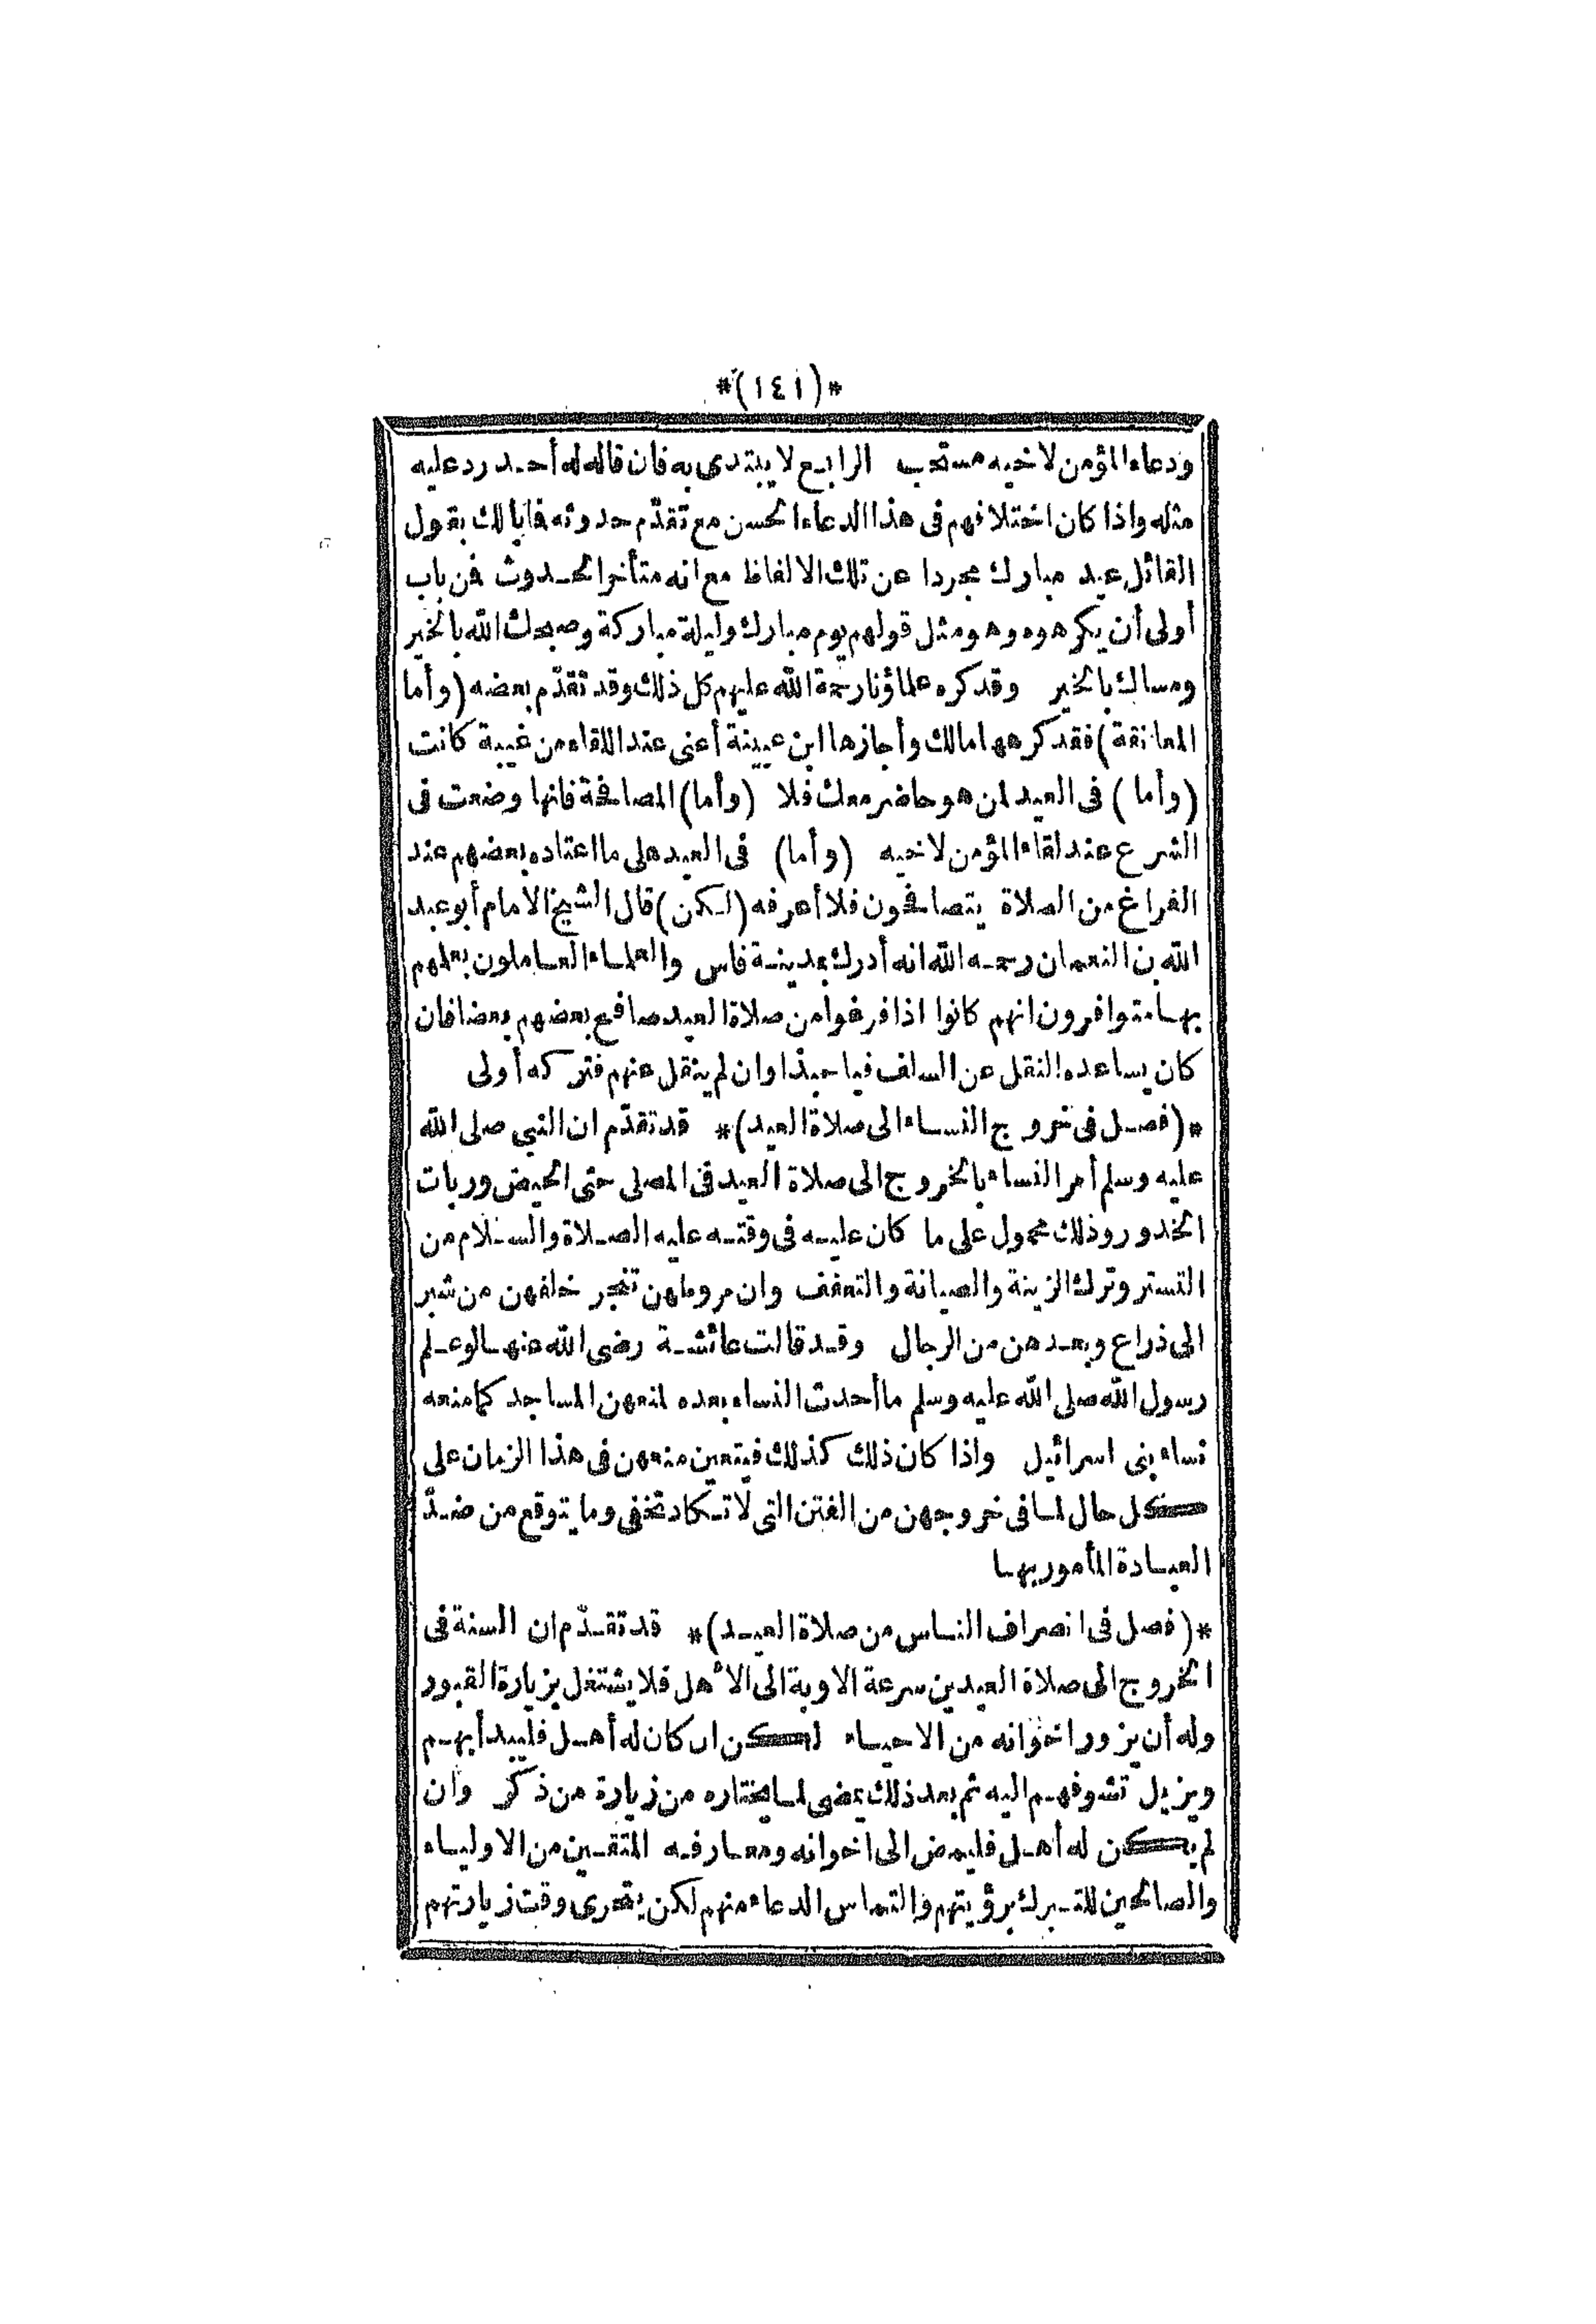 *(١٤١)*
ودعاء المؤمن لاخيه مستحب الرابع لا يبتدى به فان قاله له أحد رد عليه
مثله واذا كان اختلافهم فى هذا الدعاء الحسن مع تقدّم حدوثه فابالك بقول
القائل عيد مبارك مجردا عن تلك الالفاظ مع انه متأخر الحدوث فن باب
أولى أن يكرهوه وهو مثل قولهم يوم مبارك وليلة مباركة وصبحك الله بالخير
ومساك بالخير وقد كره علماؤنا رحمة الله عليهم كل ذلك وقد تقدّم بعضه (وأما
المعانقة) فقد كرهها مالك وأجازها ابن عيينة أعنى عند اللقاء من غيبة كانت
(وأما) فى العيد لمن هو حاضر معك فلا (وأما) المصافحة فانها وضعت فى
الشرع عند لقاء المؤمن لاخيه (وأما) فى العيد على ما اعتاده بعضهم عند
الفراغ من الصلاة يتصافحون فلا أعرفه (لكن) قال الشيخ الامام أبو عبد
الله بن النعمان رحمه الله انه أدرك بمدينة فاس والعلماء العاملون بعلمهم
بها متوافرون انهم كانوا اذا فرغوا من صلاة العيد صافح بعضهم بعضا فان
كان يساعده النقل عن السلف فيا حبذا وان لم ينقل عنهم فتركه أولى
*(فصل فى خروج النساء الى صلاة العيد)* قد تقدّم ان النبى صلى الله
عليه وسلم أمر النساء بالخروج الى صلاة العيد فى المصلى حتى الحيض وربات
الخدور وذلك محمول على ما كان عليه فى وقته عليه الصلاة والسلام من
التستر وترك الزينة والصيانة والتعفف وان مروطهن تنجر خلفهن من شبر
الى ذراع وبعدهن من الرجال وقد قالت عائشة رضى الله عنها لو علم
رسول الله صلى الله عليه وسلم ما أحدث النساء بعده لمنعهن المساجد كما منعه
نساء بنى اسرائيل واذا كان ذلك كذلك فيتعين منعهن فى هذا الزمان على
كل حال لما فى خروجهن من الفتن التى لا تكاد تخفى وما يتوقع من ضدّ
العبادة المأمور بها
*(فصل فى انصراف الناس من صلاة العيد)* قد تقدّم ان السنة فى
الخروج الى صلاة العيدين سرعة الاوبة الى الأهل فلا يشتغل بزيارة القبور
وله أن يزور اخوانه من الاحياء لكن ان كان له أهل فليبدأ بهم
ويزيل تشوفهم اليه ثم بعد ذلك يمضى لما يختاره من زيارة من ذكر وان
لم يكن له أهل فليمض الى اخوانه ومعارفه المتقين من الاولياء
والصالحين للتبرك برؤيتهم والتماس الدعاء منهم لكن يتحرى وقت زيارتهم